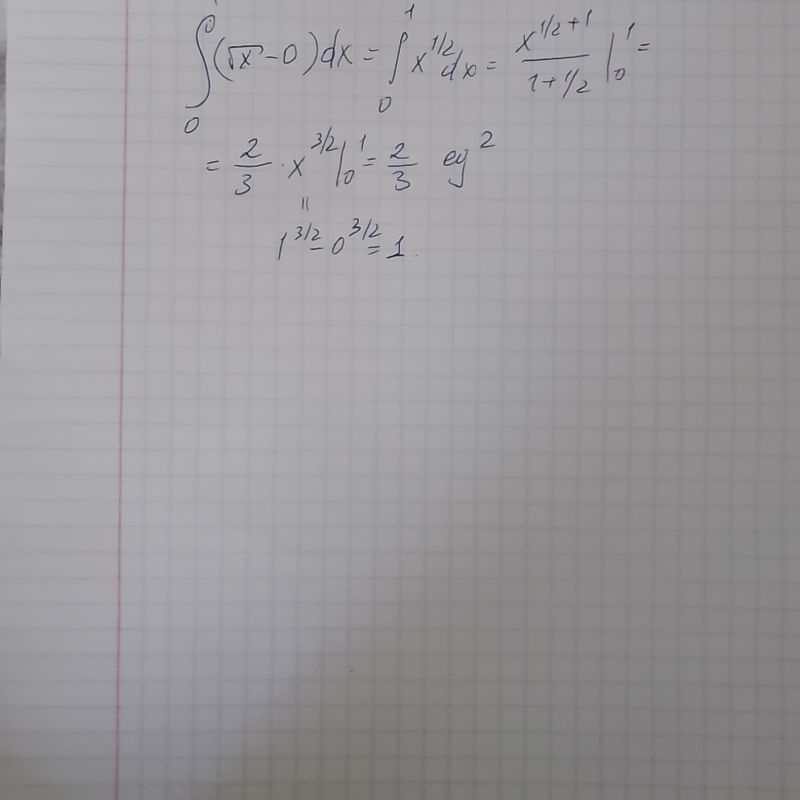 ∫₀ (√x - 0) dx = ∫₀¹ x^{1/2} dx = x^{1/2+1} / (1+1/2) |₀¹ =
= 2/3 · x^{3/2} |₀¹ = 2/3 ед²
॥
1^{3/2} - 0^{3/2} = 1.